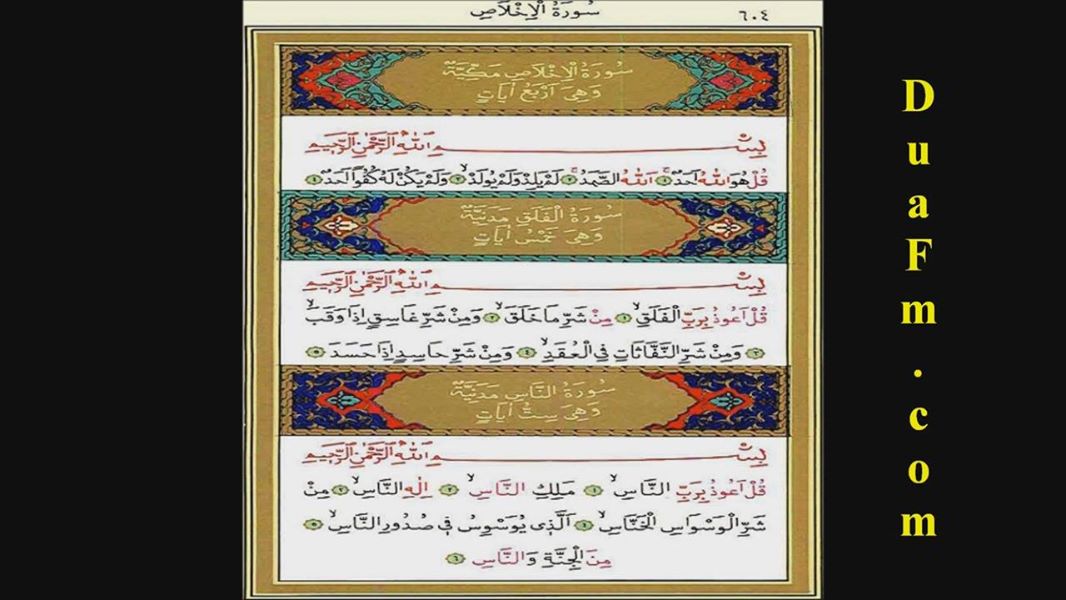 سُورَةُ الْاِخْلَاصِ
٦٠٤
سُورَةُ الْاِخْلَاصِ مَكِّيَّةٌ
وَهِىَ اَرْبَعُ اٰيَاتٍ
بِسْمِ اللّٰهِ الرَّحْمٰنِ الرَّحِيمِ
قُلْ هُوَ اللّٰهُ اَحَدٌۚ ١ اَللّٰهُ الصَّمَدُۚ ٢ لَمْ يَلِدْ وَلَمْ يُولَدْۙ ٣ وَلَمْ يَكُنْ لَهُ كُفُوًا اَحَدٌ ٤
سُورَةُ الْفَلَقِ مَدَنِيَّةٌ
وَهِىَ خَمْسُ اٰيَاتٍ
بِسْمِ اللّٰهِ الرَّحْمٰنِ الرَّحِيمِ
قُلْ اَعُوذُ بِرَبِّ الْفَلَقِۙ ١ مِنْ شَرِّ مَا خَلَقَۙ ٢ وَمِنْ شَرِّ غَاسِقٍ اِذَا وَقَبَۙ
٣ وَمِنْ شَرِّ النَّفَّاثَاتِ فِي الْعُقَدِۙ ٤ وَمِنْ شَرِّ حَاسِدٍ اِذَا حَسَدَ ٥
سُورَةُ النَّاسِ مَدَنِيَّةٌ
وَهِىَ سِتُّ اٰيَاتٍ
بِسْمِ اللّٰهِ الرَّحْمٰنِ الرَّحِيمِ
قُلْ اَعُوذُ بِرَبِّ النَّاسِۙ ١ مَلِكِ النَّاسِۙ ٢ اِلٰهِ النَّاسِۙ ٣ مِنْ
شَرِّ الْوَسْوَاسِ الْخَنَّاسِۙ ٤ اَلَّذِي يُوَسْوِسُ فِي صُدُورِ النَّاسِۙ ٥
مِنَ الْجِنَّةِ وَالنَّاسِ ٦
DuaFm.com